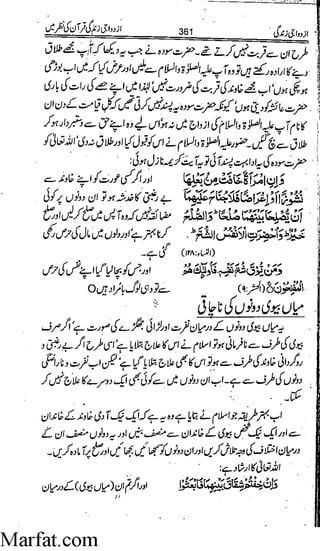 ازدواجی زندگی قرآن کی نظر میں
361
ازدواجی زندگی
طرح ان سے قربت نہیں کرتے تھے۔ حضرت سودہ نے جب یہ دیکھا کہ آپ مجھے طلاق
دینے کا ارادہ رکھتے ہیں تو وہ آپ علیہ الصلوٰۃ والسلام سے ملیں اور عرض کیا کہ میں اب بوڑھی
ہو چکی ہوں' اب مجھے خاوند کی ضرورت نہیں لہٰذا میں اپنے حصے کی رات کی باری
حضرت عائشہ کو دیتی ہوں' کیونکہ حضرت سودہ یہ نہیں چاہتی تھیں کہ کل قیامت کے دن ان
کا نام آپ علیہ الصلوٰۃ والسلام کی ازواج میں نہ ہو اس لیے وہ اپنے حق سے دستبردار ہو کر
طلاق سے بچ گئیں۔ حضور علیہ الصلوٰۃ والسلام نے اس کو قبول کیا اور طلاق نہ دی' اللہ تعالیٰ کو
حضرت سودہ کی یہ ادا بہت پسند آئی تو یہ آیت کریمہ نازل ہوئی:
وَاِنِ امْرَاَةٌ خَافَتْ مِنْۢ بَعْلِهَا اور اگر کسی عورت کو اپنے خاوند سے
نُشُوْزًا اَوْ اِعْرَاضًا فَلَا جُنَاحَ عَلَيْهِمَآ بے رغبتی کا خدشہ ہو تو ان دونوں پر کوئی
اَنْ يُّصْلِحَا بَيْنَهُمَا صُلْحًا ؕ وَالصُّلْحُ مضائقہ نہیں کہ وہ آپس میں صلح کر لیں اور صلح
خَيْرٌ ؕ وَاُحْضِرَتِ الْاَنْفُسُ الشُّحَّ ؕ کرنا بہتر ہے اور دلوں میں مال کی حرص رکھی
(النساء:۱۲۸) گئی ہے۔
وَمَنْ يُّوْقَ شُحَّ نَفْسِهٖ فَاُولٰٓئِكَ هُمُ اور جس کو بچا لیا گیا اپنے نفس کی حرص
الْمُفْلِحُوْنَ (الحشر:۹) سے تو وہی لوگ بامراد ہیں O
میاں بیوی دونوں کی ناچاقی
یہ میاں بیوی دونوں کے درمیان نفرت اور لڑائی جھگڑے کی صورت ہے' اگر صرف
بیوی کی طرف سے نافرمانی ہو تو اسلام نے اس کا بھی علاج بتلایا ہے' اسی طرح اگر بے رغبتی و
روگردانی خاوند کی طرف سے ہو تو اس کا بھی علاج بتلایا گیا ہے' لیکن اب نفرت و ناراضگی
دونوں کی طرف سے ہے۔ اب ان دونوں میں سے کوئی بھی ایک دوسرے کا علاج نہیں کر
سکتا۔
اب بہتر طریقہ جو اسلام نے بتایا ہے وہ یہ ہے کہ ایک نیک آدمی خاوند کے خاندان
سے اور ایک نیک شخص بیوی کے خاندان سے منصف بنیں اور یہ دونوں منصف ان کے
درمیان اختلاف کی وجہ تلاش کریں اور ان دونوں کو سمجھائیں بجھائیں اور صلح پر آمادہ کریں۔
اللہ تعالیٰ کا ارشاد ہے:
وَاِنْ خِفْتُمْ شِقَاقَ بَيْنِهِمَا فَابْعَثُوْا اور اگر تم ان (میاں بیوی) کے درمیان
Marfat.com